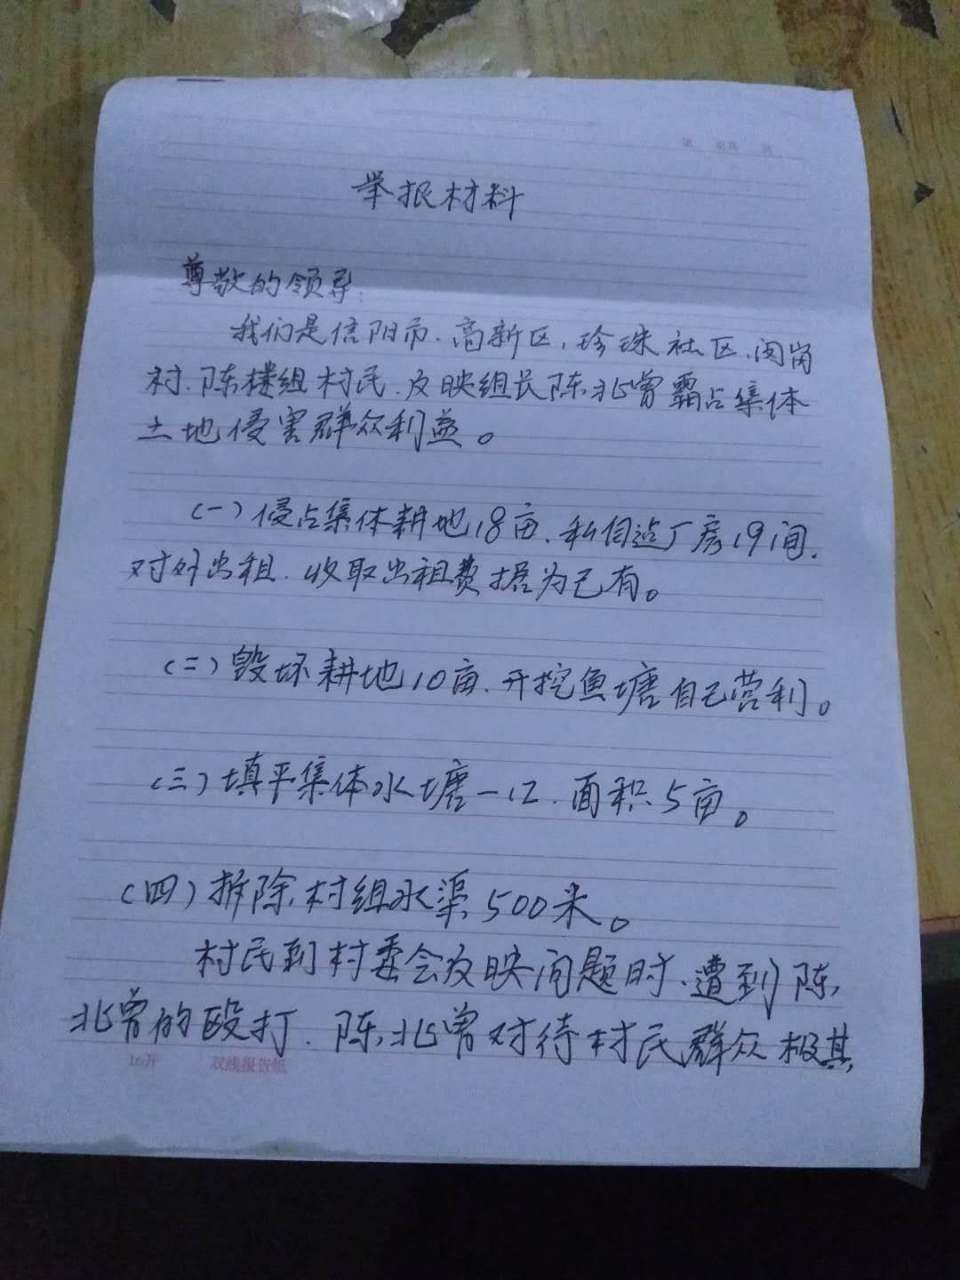 举报材料
尊敬的领导:
我们是信阳市.高新区.珍珠社区.闵岗
村.陈楼组村民.反映组长陈兆曾霸占集体
土地侵害群众利益。
(一)侵占集体耕地18亩.私自造厂房19间.
对外出租.收取出租费据为己有。
(二)毁坏耕地10亩.开挖鱼塘自己营利。
(三)填平集体水塘一口.面积5亩。
(四)拆除村组水渠500米。
村民到村委会反映问题时.遭到陈
兆曾的殴打.陈兆曾对待村民群众极其
16开 双线报告纸